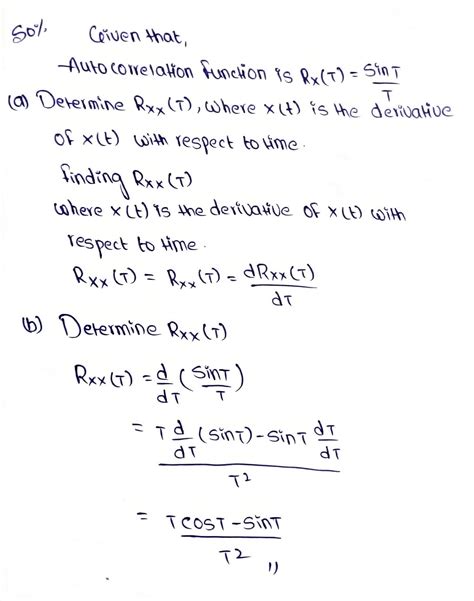 Sol%. Given that,
Autocorrelation function is Rx(T) = SinT / T
(a) Determine Rxx(T), where x(t) is the derivative
of x(t) with respect to time.
finding Rxx(T)
where x(t) is the derivative of x(t) with
respect to time.
Rxx(T) = Rxx(T) = dRxx(T) / dT
(b) Determine Rxx(T)
Rxx(T) = d/dT (SinT / T)
= T d/dT (SinT) - SinT dT/dT / T²
= T COST - SinT / T² //